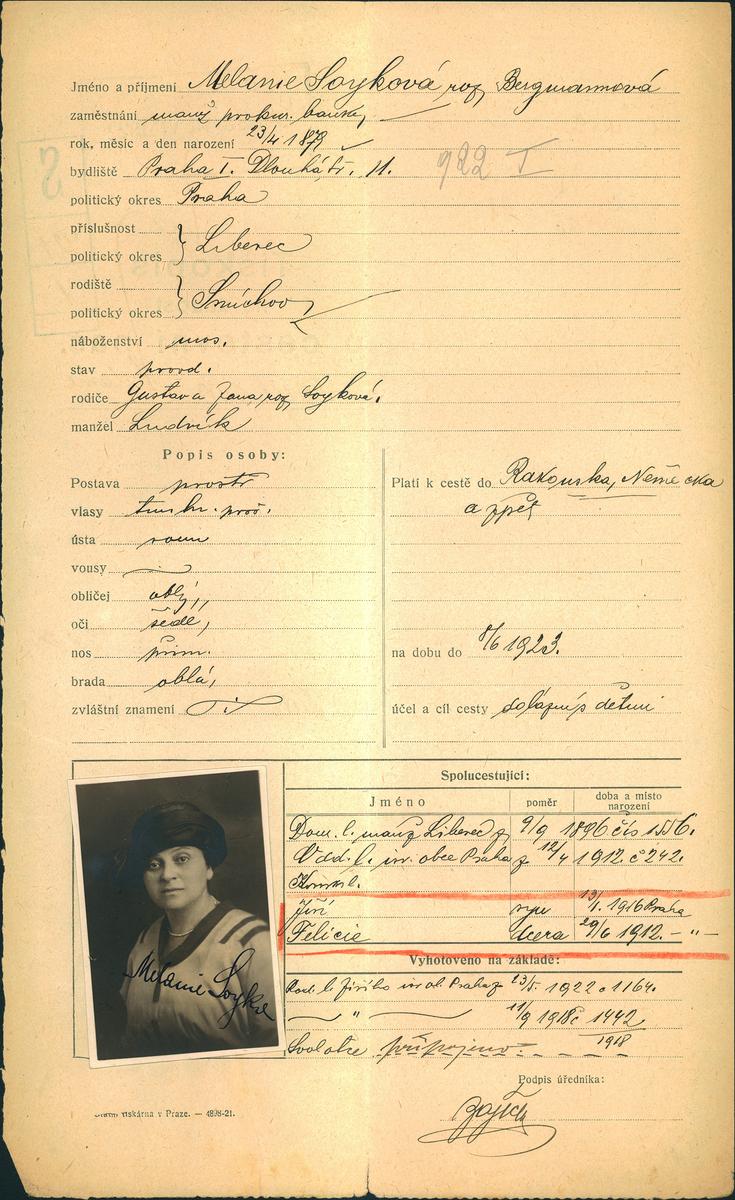 Jméno a příjmení Melanie Soyková roz. Bergmannová
zaměstnání manž. prokur. banky
rok, měsíc a den narození 23/4 1879
bydliště Praha I. Dlouhá tř. 11.
922 I
politický okres Praha
příslušnost
politický okres } Liberec
rodiště
politický okres } Smíchov
náboženství mos.
stav provd.
rodiče Gustav a Jana roz. Soyková.
manžel Ludvík
Popis osoby:
Postava prostř
vlasy tm. hn. proš.
ústa soum
vousy
obličej oblý,
oči šedé,
nos přím.
brada oblá,
zvláštní znamení
Platí k cestě do Rakouska, Německa
a zpět
na dobu do 8/6 1923.
účel a cíl cesty do lázní s dětmi
Spolucestující:
Jméno poměr doba a místo narození
Dom. l. manž. Liberec z 9/9 1896 čís 1556.
Odd. l. isr. obce Praha z 12/4 1912. č 242.
Jiří syn 19/1. 1916 Praha
Felicie dcera 29/6 1912. – „ –
Vyhotoveno na základě:
Rod. l. Jiřího isr. ob. Praha z 23/5 1922 č 1164.
„ 11/9 1918 č 1442
1918
Svol otce připojeno.
Melanie Soyka
Podpis úředníka:
tiskárna v Praze. — 4898-21.